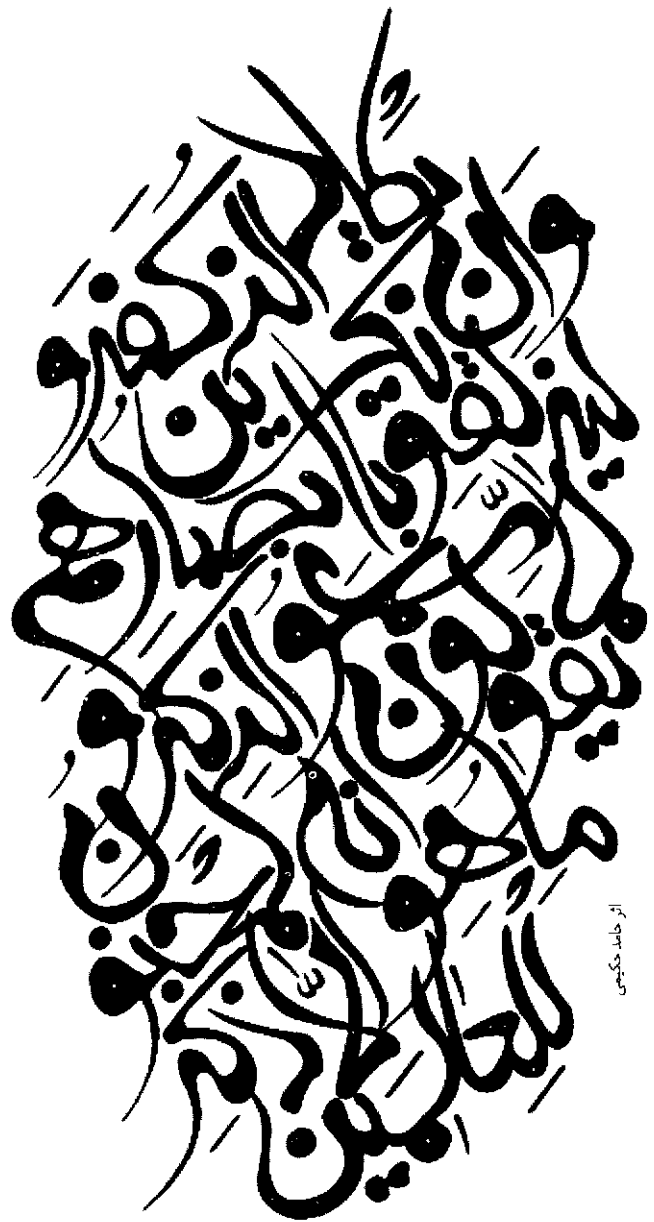 وان يكاد الذين كفروا
ليزلقونك بابصارهم
لما سمعوا الذكر
ويقولون انه لمجنون
وما هو الا ذكر للعالمين
اثر حامد حکیمی